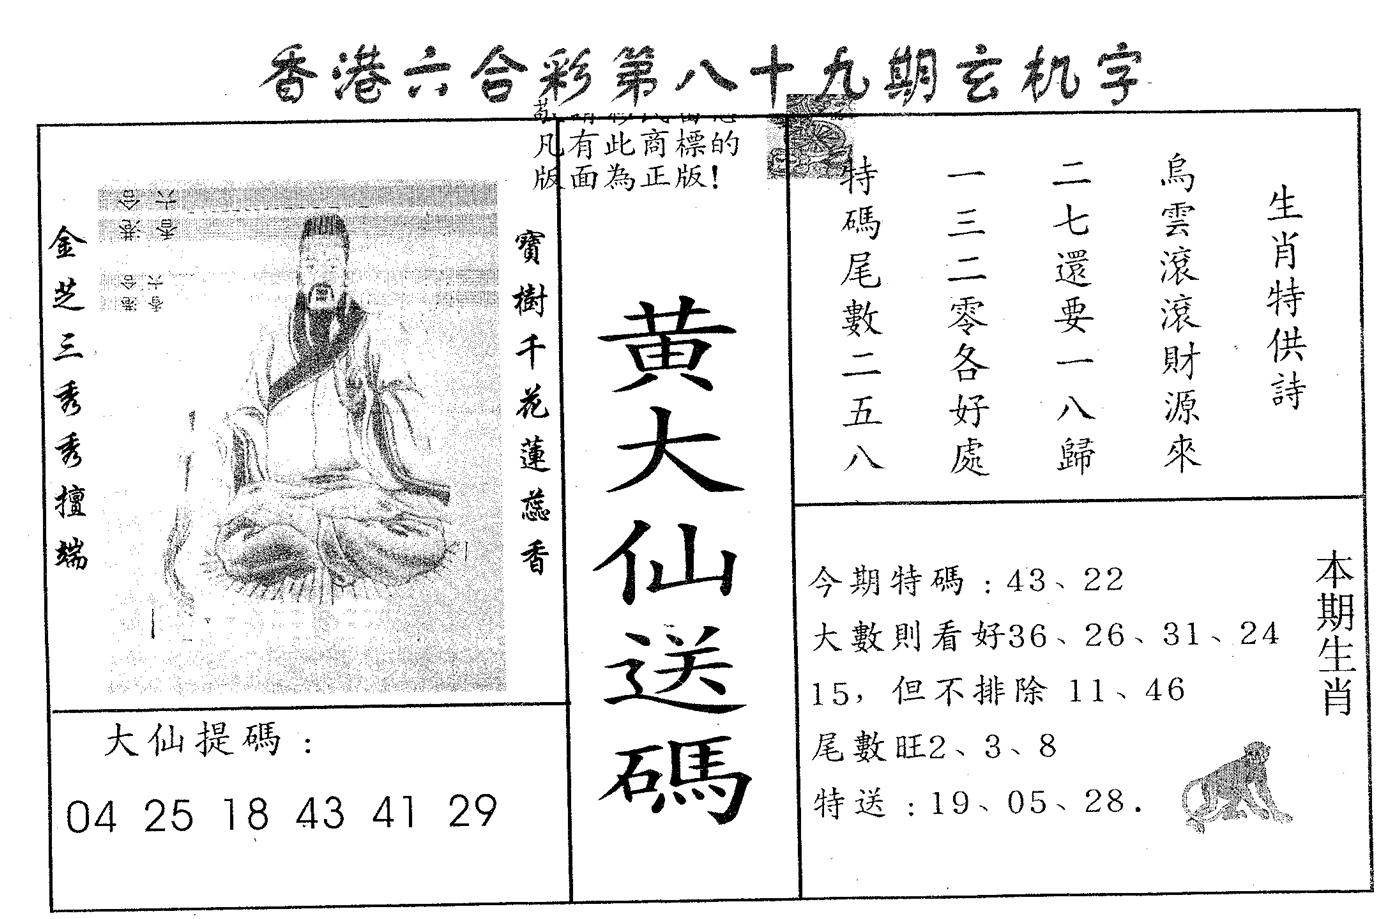 香港六合彩第八十九期玄机字
凡有此商標的
版面為正版!
金芝三秀秀擅端
寶樹千花蓮蕊香
六合
香港
六合
香港
大仙提碼:
04 25 18 43 41 29
黄大仙送碼
生肖特供詩
烏雲滾滾財源來
二七還要一八歸
一三二零各好處
特碼尾數二五八
本期生肖
今期特碼:43、22
大數則看好36、26、31、24
15，但不排除 11、46
尾數旺2、3、8
特送:19、05、28.